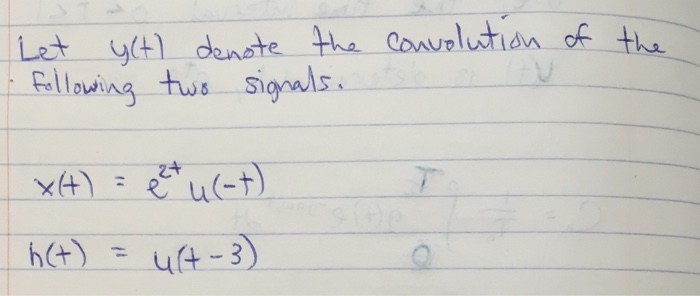 Let y(t) denote the convolution of the
following two signals.
x(t) = e^{2t} u(-t)
h(t) = u(t-3)